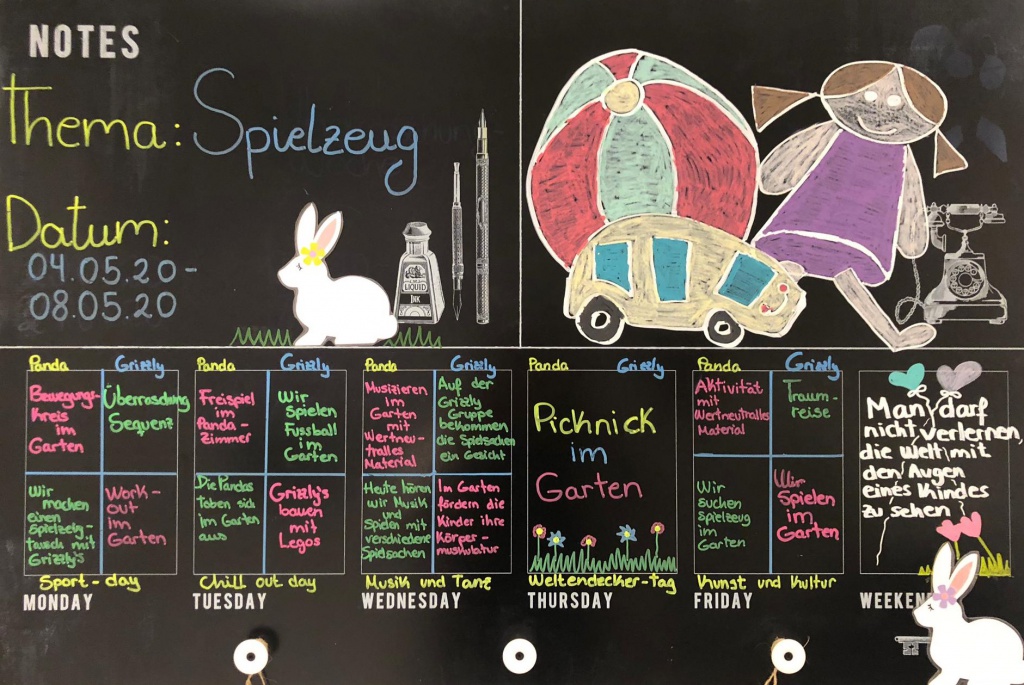 NOTES
Thema: Spielzeug
Datum:
04.05.20-
08.05.20
LIQUID
INK
Panda Grizzly
Bewegungs-
Kreis im
Garten
Überraschung
Sequenz
Wir
machen
einen
Spielzeug-
Tausch mit
Grizzly's
Work-
out
im
Garten
Sport-day
MONDAY
Panda Grizzly
Freispiel
im
Panda-
Zimmer
Wir
spielen
Fussball
im
Garten
Die Pandas
Toben sich
im Garten
aus
Grizzly's
bauen
mit
Legos
Chill out day
TUESDAY
Panda Grizzly
Musizieren
im
Garten
mit
Wertneu-
tralles
Material
Auf der
Grizzly
Gruppe
bekommen
die Spielsachen
ein Gesicht
Heute hören
wir Musik
und
Spielen mit
verschiedene
Spielsachen
Im Garten
fördern die
Kinder ihre
Körper-
muskulatur
Musik und Tanz
WEDNESDAY
Panda Grizzly
Picknick
im
Garten
Weltendecker-tag
THURSDAY
Panda Grizzly
Aktivität
mit
Wertneutralles
Material
Traum-
reise
Wir
suchen
Spielzeug
im
Garten
Wir
Spielen
im
Garten
Kunst und Kultur
FRIDAY
Man darf
nicht verlernen,
die Welt mit
den Augen
eines Kindes
zu sehen